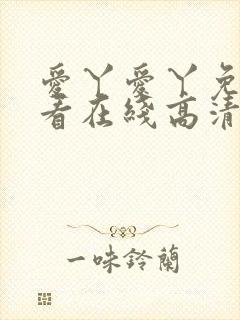 愛丫愛丫免
看在綫高清
一味鈴蘭